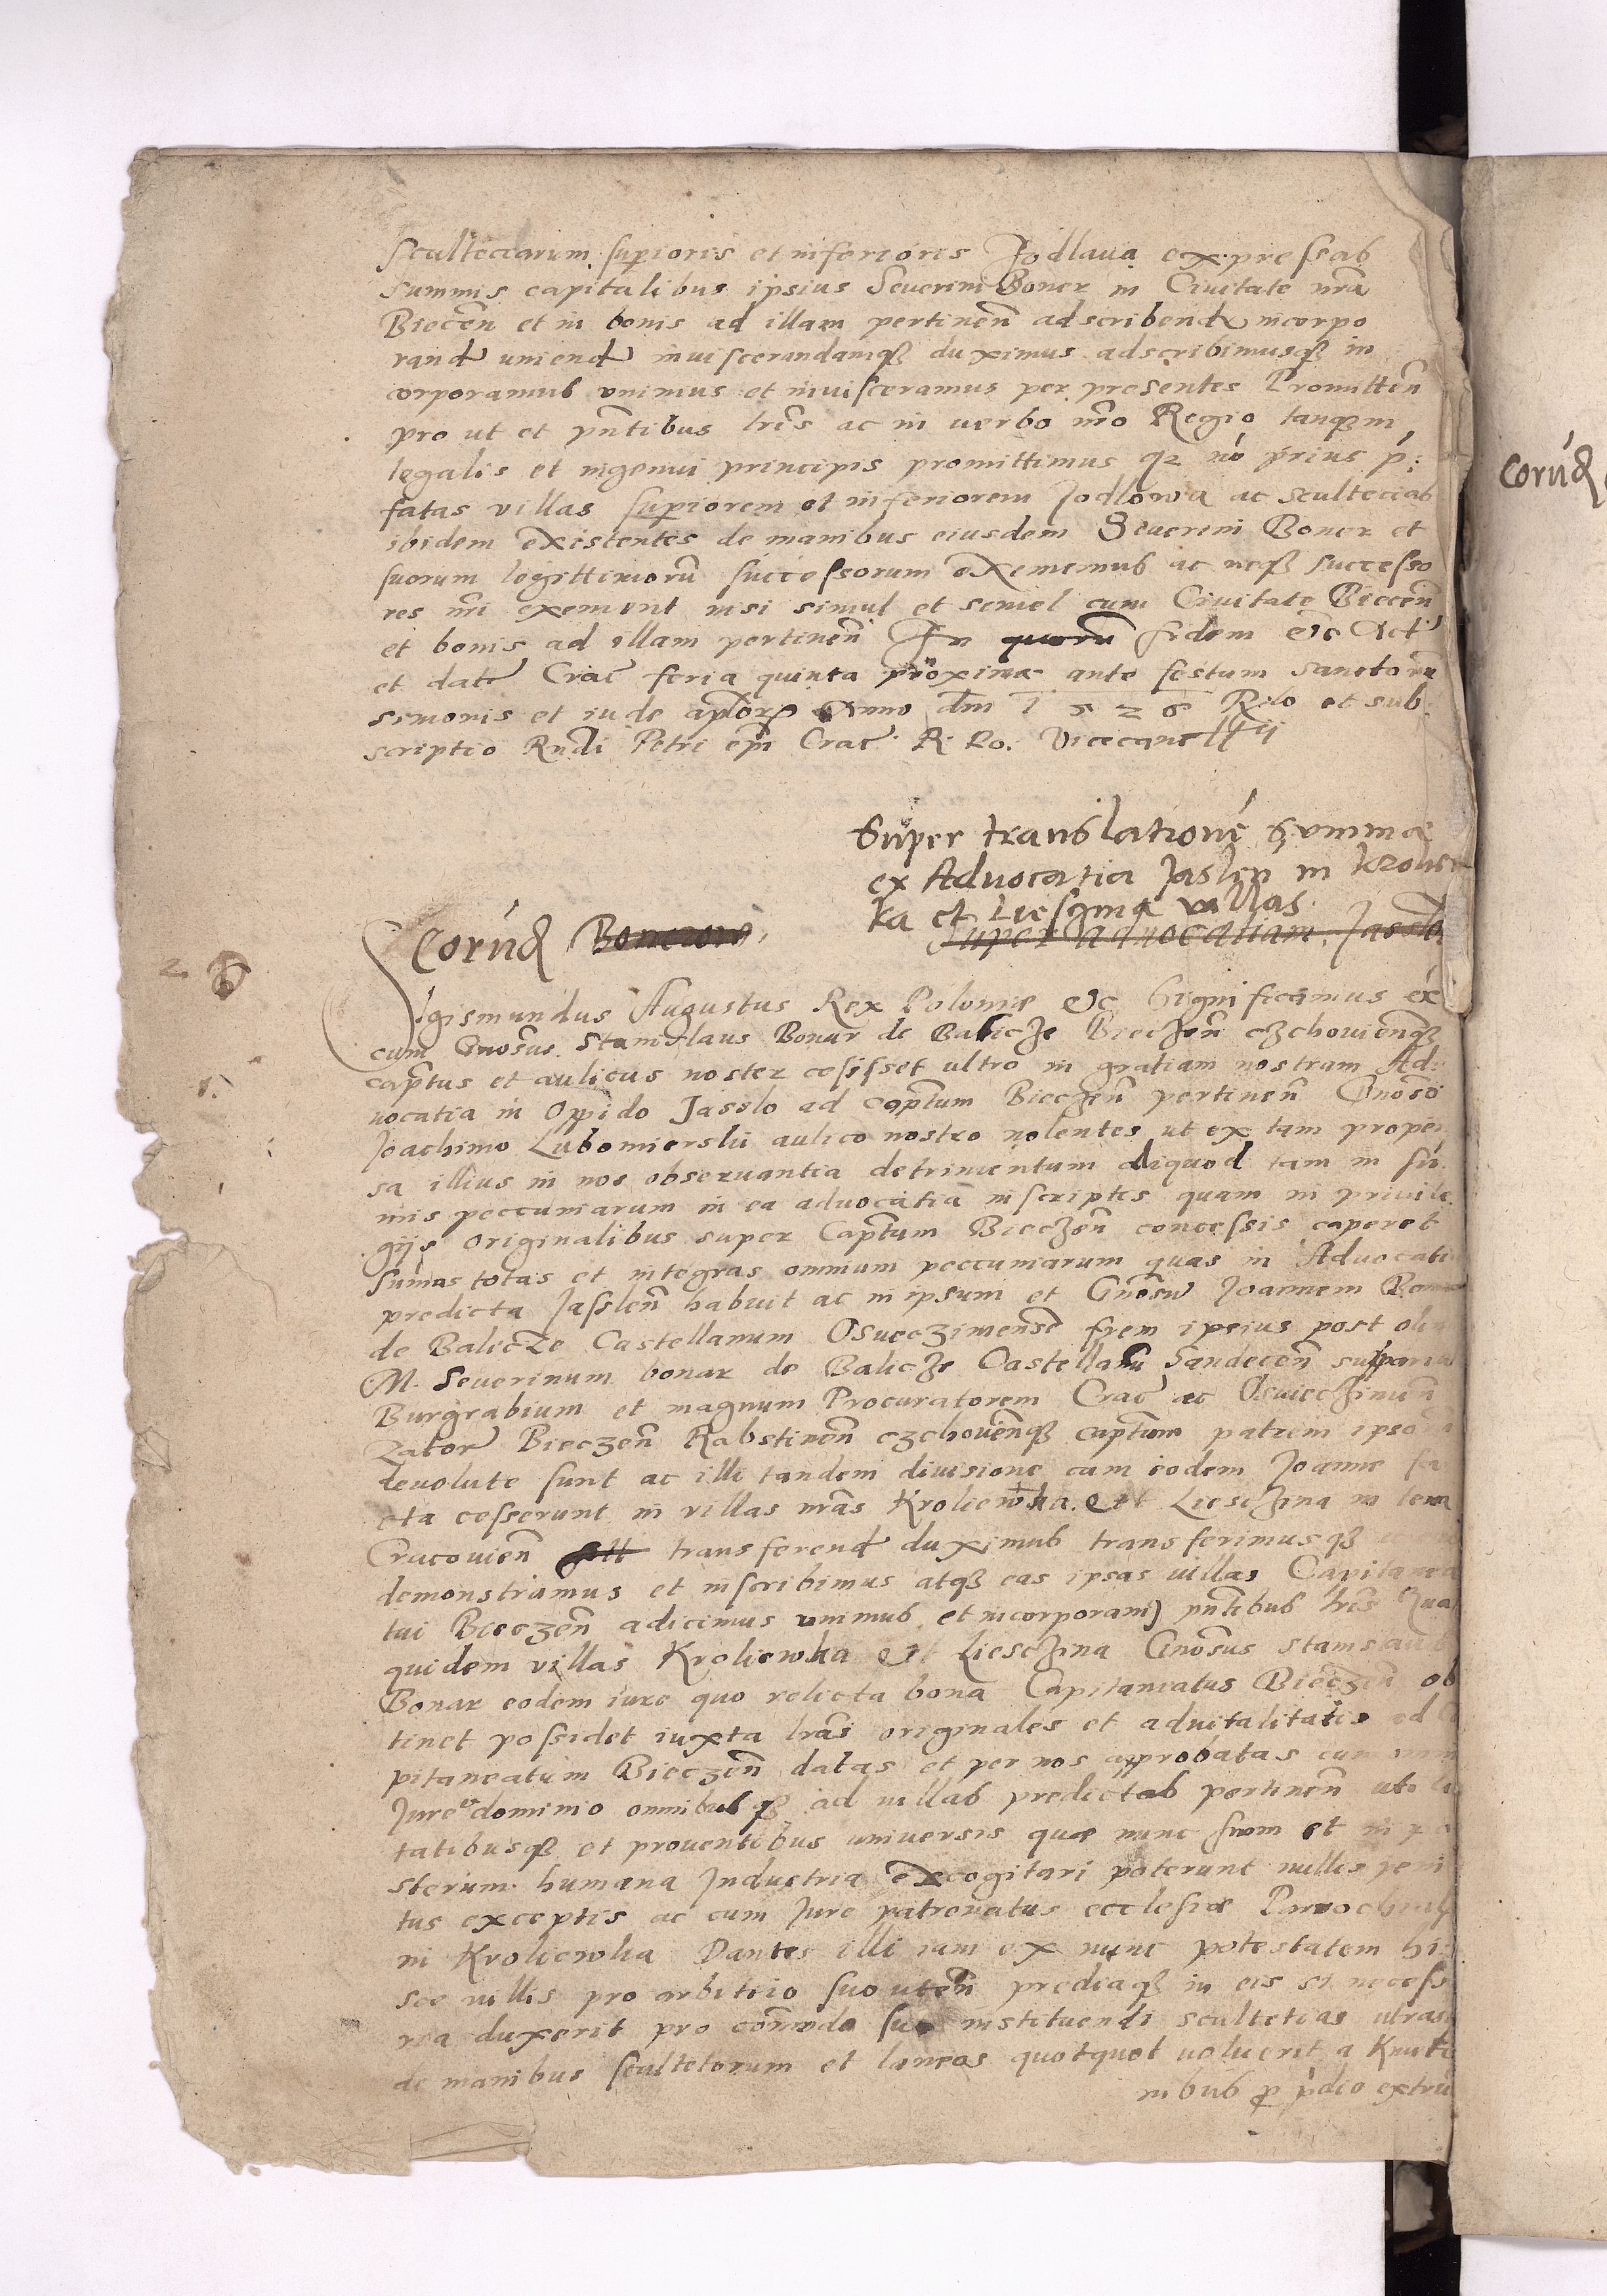 Scultetiarum superioris et inferioris Jodlaua expressas
summis capitalibus ipsius Seuerini Boner in Ciuitate nra
Biecen et in bonis ad illam pertinen adscribend incorpo
rand uniend inuiscerandamq duximus adscribimusq in
corporamus vnimus et inuisceramus per presentes Promitten
pro ut et pntibus lris ac in verbo nro Regio tanqm
legalis et ingenui principis promittimus q nó prius p:
fatas villas supiorem et inferiorem Jodlowa ac scultecias
ibidem existentes de manibus eiusdem Seuerini Boner et
suorum legittimorū successorum eximemus ac neq successo
res nri eximent nisi simul et semel cum Ciuitate Biecen
et bonis ad illam pertinen In quorū fidem etc Act
et dat Crac feria quinta proxima ante festum sanctorū
simonis et iude aplorz Anno dm 1526 Rlo et sub:
scriptio Rndi Petri epi Crac R. Po. Vicecancellarii
Super translationē summae
ex Aduocatia Jaslen in Krolie
ka et Lieszina villas.
super aduocatiam Jasslo
Corūd Bonerow
2. 6
Sigismundus Augustus Rex Poloniae etc Significamus etc
cum Gnosus Stanislaus Bonar de Balicze Bieczen czchouienq
captus et aulicus noster cesisset ultro in gratiam nostram Ad:
uocatia in Oppido Jasslo ad captum Bieczen pertinen Gnoso
1.
Joachimo Lubomierskii aulico nostro nolentes ut ex tam propen
sa illius in nos obseruantia detrimentum aliquod tam in sū
mis peccuniarum in ea aduocatia inscriptis quam in priuile
gijs originalibus super Captum Bieczen concessis caperet
sumas totas et integras omnium peccuniarum quas in Aduocatia
predicta Jasslen habuit ac in ipsum et Gnosū Joannem Bonar
de Balicze Castellanum Osueczimense frem ipsius post olim
M. Seuerinum bonar de Balicze Castellanū Sandecen supparium
Burgrabium et magnum Procuratorem Crac ac Osuieczimen
Zator Bieczen Rabstinen czchouienq captum patrem ipsorū
deuolute sunt ac illi tandem diuisione cum eodem Joanne fa
cta cesserunt in villas nras Kroliowka et Liesczina in terra
Cracouien transferend duximus transferimusq
demonstramus et inscribimus atq eas ipsas villas Capitanea
tui Bieczen adicimus vnimus et incorporam pntibus lris Quas
quidem villas Kroliewka et Liesczina Gnosus stanislaus
Bonar eodem iure quo relicta bona Capitaneatus Bieczen ob
tinet possidet iuxta lras originales et aduitalitatis ad Ca
pitaneatum Bieczen datas et per nos approbatas cum omni
Jure et dominio omnibusq ad uillas predictas pertinen utili
tatibusq et prouentibus uniuersis quae nunc snom et in po
sterum humana Industria excogitari poterunt nullis peni
tus exceptis ac cum Jure patronatus ecclesiae Parrochialis
in Kroliewka Dantes illi iam ex nunc potestatem hi:
sce uillis pro arbitrio suo utendi prediaq in eis si necessa
ria duxerit pro cōmodo suo instituendi scultetias utrasq
de manibus scultetorum et laneos quotquot uoluerit a Kmeto
nibus p pdio extru
Corūd